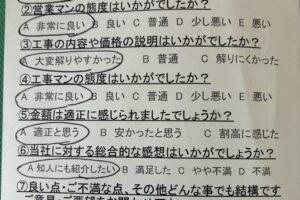 ②営業マンの態度はいかがでしたか?
A 非常に良い B 良い C 普通 D 少し悪い E 悪い
③工事の内容や価格の説明はいかがでしたか?
A 大変解りやすかった B 普通 C 解りにくかった
④工事マンの態度はいかがでしたか?
A 非常に良い B 良い C 普通 D 少し悪い E 悪い
⑤金額は適正に感じられましたでしょうか?
A 適正と思う B 安かったと思う C 割高に感じた
⑥当社に対する総合的な感想はいかがでしょうか?
A 知人にも紹介したい B 満足した C やや不満 D 不満
⑦良い点・ご不満な点、その他どんな事でも結構です